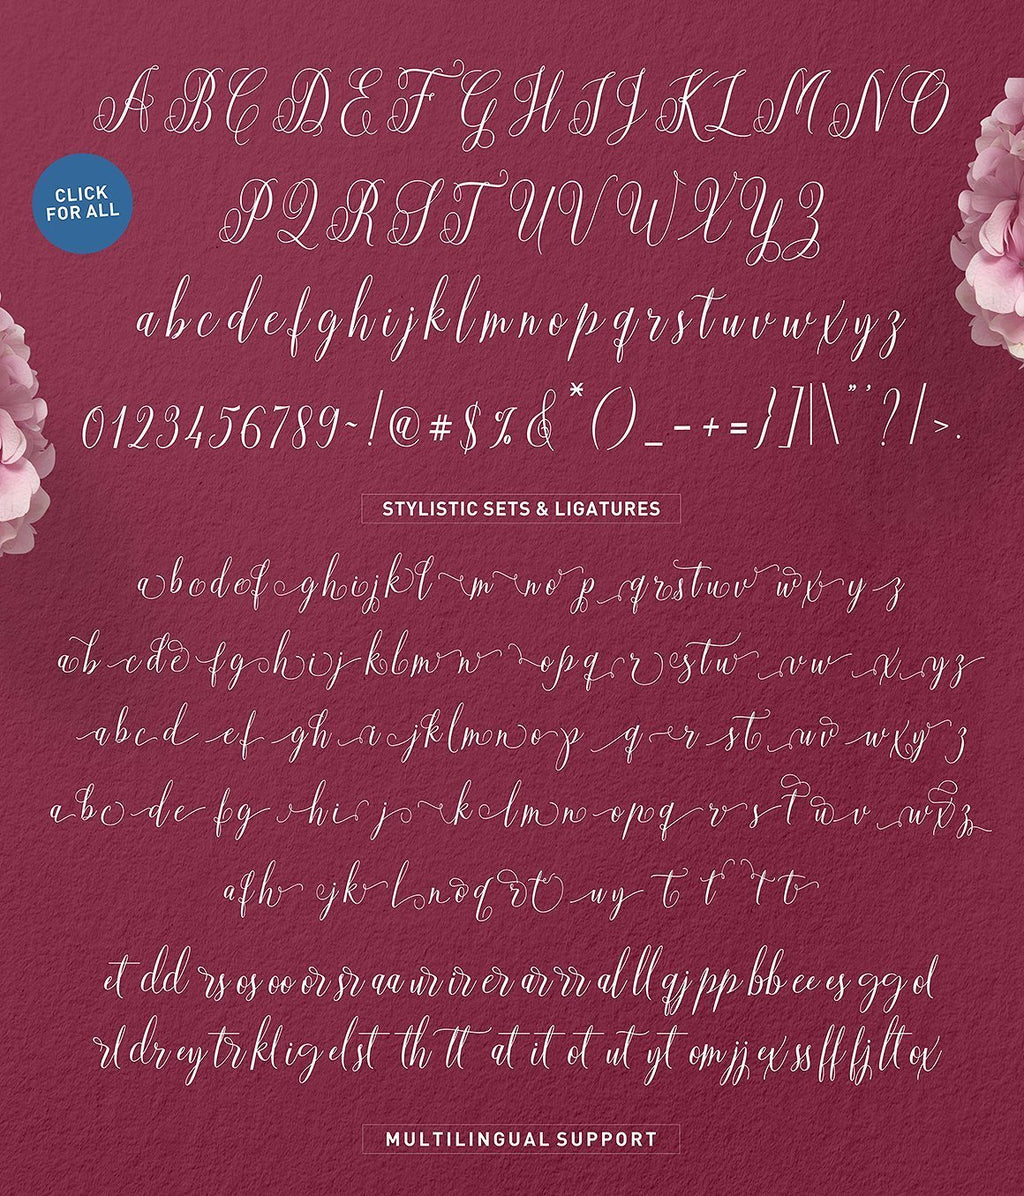 A B C D E F G H I J K L M N O
CLICK
FOR ALL
P Q R S T U V W X Y Z
a b c d e f g h i j k l m n o p q r s t u v w x y z
0 1 2 3 4 5 6 7 8 9 ~ ! @ # $ % & * ( ) _ - + = } ] | \ " ' ? / > .
STYLISTIC SETS & LIGATURES
a b c d e f g h i j k l m n o p q r s t u v w x y z
a b c d e f g h i j k l m n o p q r s t u v w x y z
a b c d e f g h i j k l m n o p q r s t u v w x y z
a b c d e f g h i j k l m n o p q r s t u v w x z
a f h j k l n o q r t u y t t t t
et dd rs os oo or sr aa ur ir er ar rr al ll qj pp bb ee es gg ol
rl dr ey tr kl ig el st th tt at it ot ut yt om jj ex ss ff fj lt ox
MULTILINGUAL SUPPORT